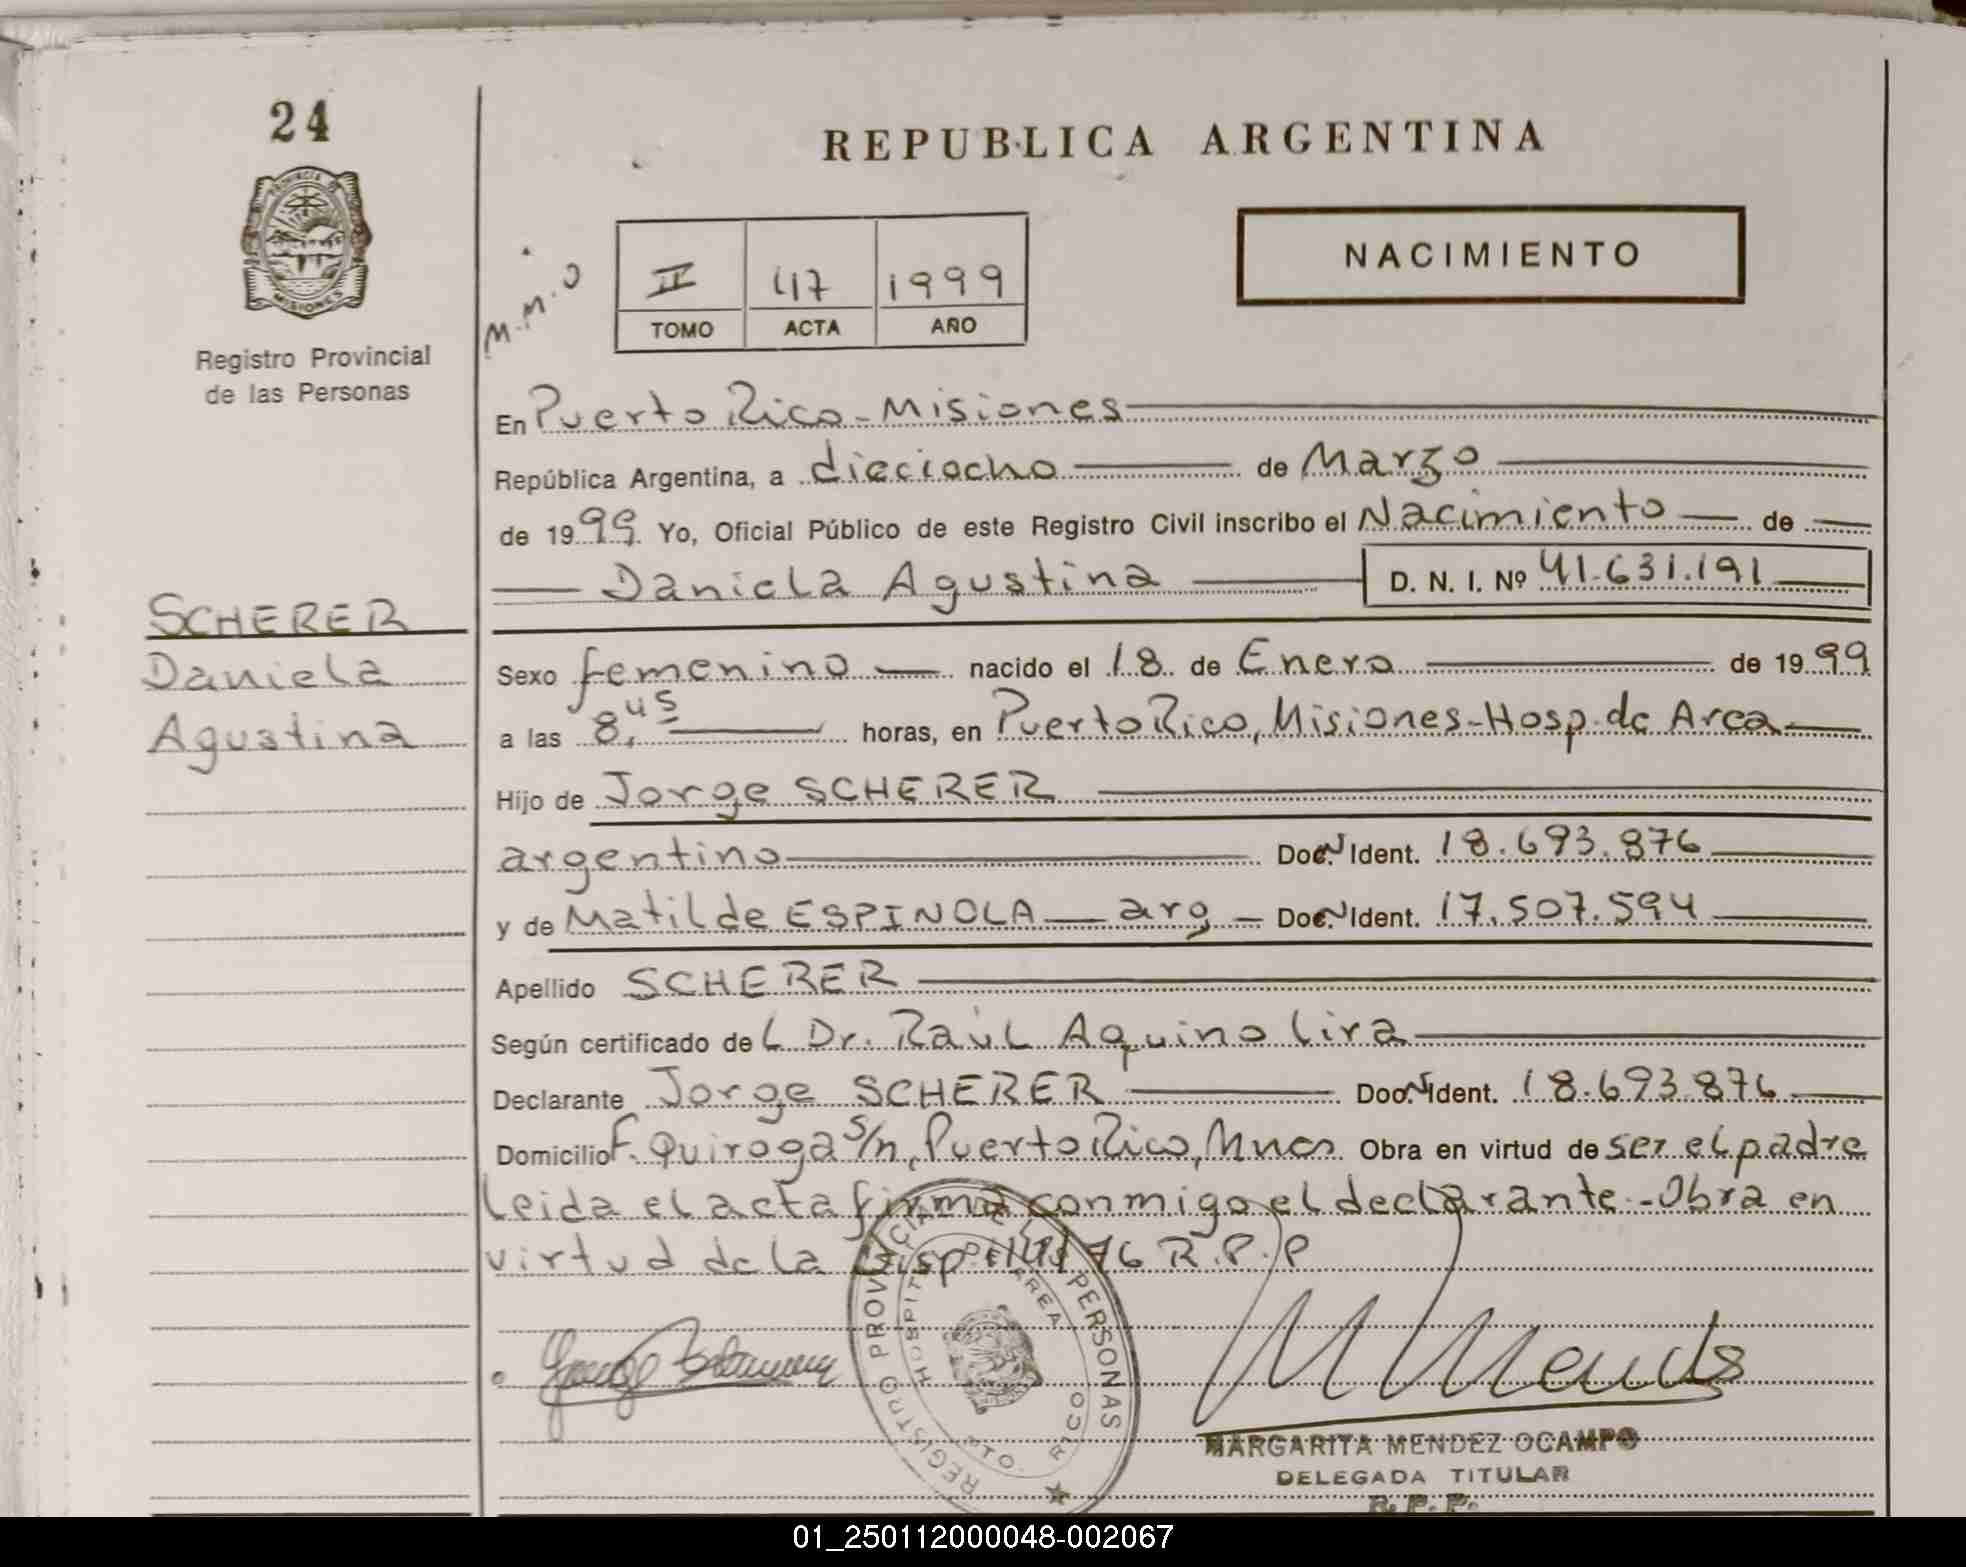 24
REPUBLICA ARGENTINA
PROVINCIA DE
MISIONES
NACIMIENTO
M.M.O
II 417 1999
TOMO ACTA AÑO
Registro Provincial
de las Personas
En Puerto Rico - Misiones
República Argentina, a dieciocho de Marzo
de 1999 Yo, Oficial Público de este Registro Civil inscribo el Nacimiento de
Daniela Agustina D. N. I. Nº 41.631.191
SCHERER
Daniela
Agustina
Sexo femenino nacido el 18 de Enero de 1999
a las 8,45 horas, en Puerto Rico, Misiones-Hosp.de Area
Hijo de Jorge SCHERER
argentino Doc. Ident. 18.693.876
y de Matilde ESPINOLA arg Doc. Ident. 17.507.594
Apellido SCHERER
Según certificado del Dr. Raúl Aquino Lira
Declarante Jorge SCHERER Doc. Ident. 18.693.876
Domicilio F. Quiroga S/n, Puerto Rico, Mnes Obra en virtud de ser el padre
leida el acta firma conmigo el declarante - Obra en
virtud de la Disp. 76 R.P.P
REGISTRO PROVINCIAL DE LAS PERSONAS
HOSPITAL DE AREA
PTO. RICO
MARGARITA MENDEZ OCAMPO
DELEGADA TITULAR
R. P. P.
01_250112000048-002067